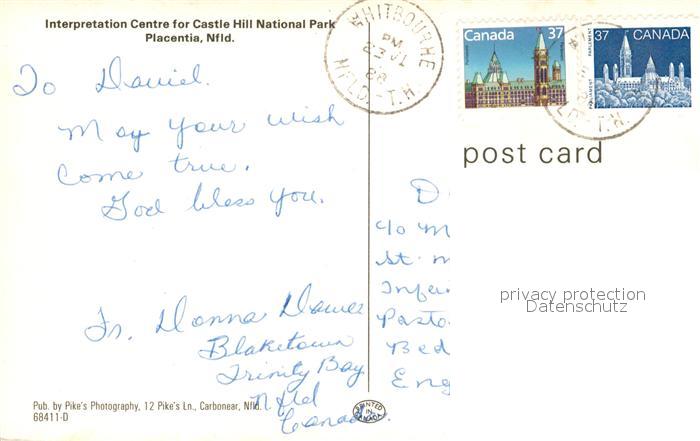 Interpretation Centre for Castle Hill National Park
Placentia, Nfld.
WHITBOURNE
PM
23 VI
88
NFLD. - T.N.
Canada 37
37 CANADA
post card
To Daniel.
May your wish
come true.
God bless you.
Fr. Donna
Blaketown
Trinity Bay
Nfld
Canada.
D
c/o M
St. M
Infer
Pasto
Bed
Eng
privacy protection
Datenschutz
Pub. by Pike's Photography, 12 Pike's Ln., Carbonear, Nfld.
68411-D
PRINTED IN CANADA